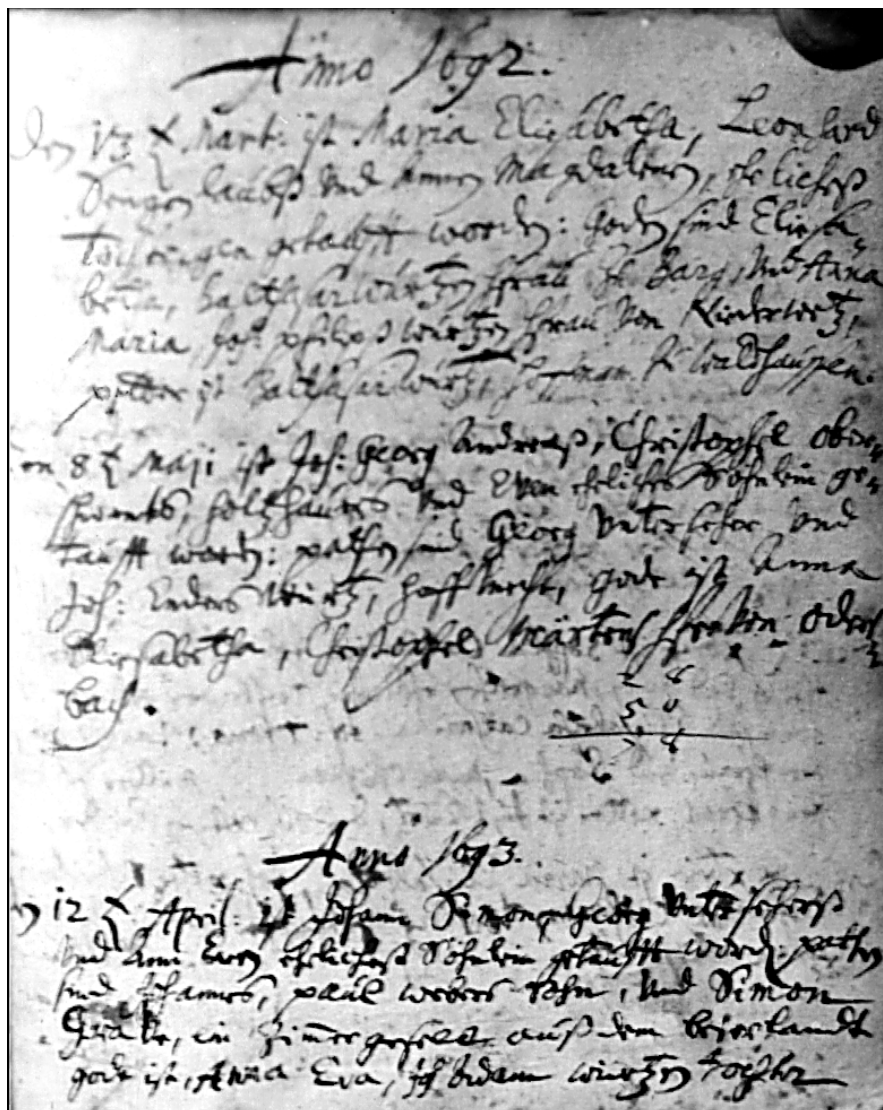 Anno 1692.
Den 13 t Mart: ist Maria Elisabetha, Leonhard
und Annen Magdalenen, eheliches
Töchterlgen getaufft worden: Goden sind Eliesa-
betha, Balthasar Würtzen frau zu Barg, und Anna
Maria, Joh: Philips Würtzen frau von Niederwertz,
petter ist Balthasar Würtz, hoffman zu Waldhaussen.
en 8 t Maji ist Joh: Georg Andreaß, Christophel ober-
holtzhauers und Even eheliches Söhnlein ge-
taufft worden: pathen sind Georg Unterseher und
Joh: Enders Würtz, hoffknecht, gode ist Anna
Eliesabetha, Christophel Märtens oders
bach.
Anno 1693.
n 12 t April: ist Johann Simon, Georg Untersehers
und Ann Even eheliches Söhnlein getaufft word: pathen
sind Johannes, paul webers sohn, und Simon
ein Zimmergesell auß dem beierlandt
gode ist, Anna Eva, Joh Adam würtzen tochter